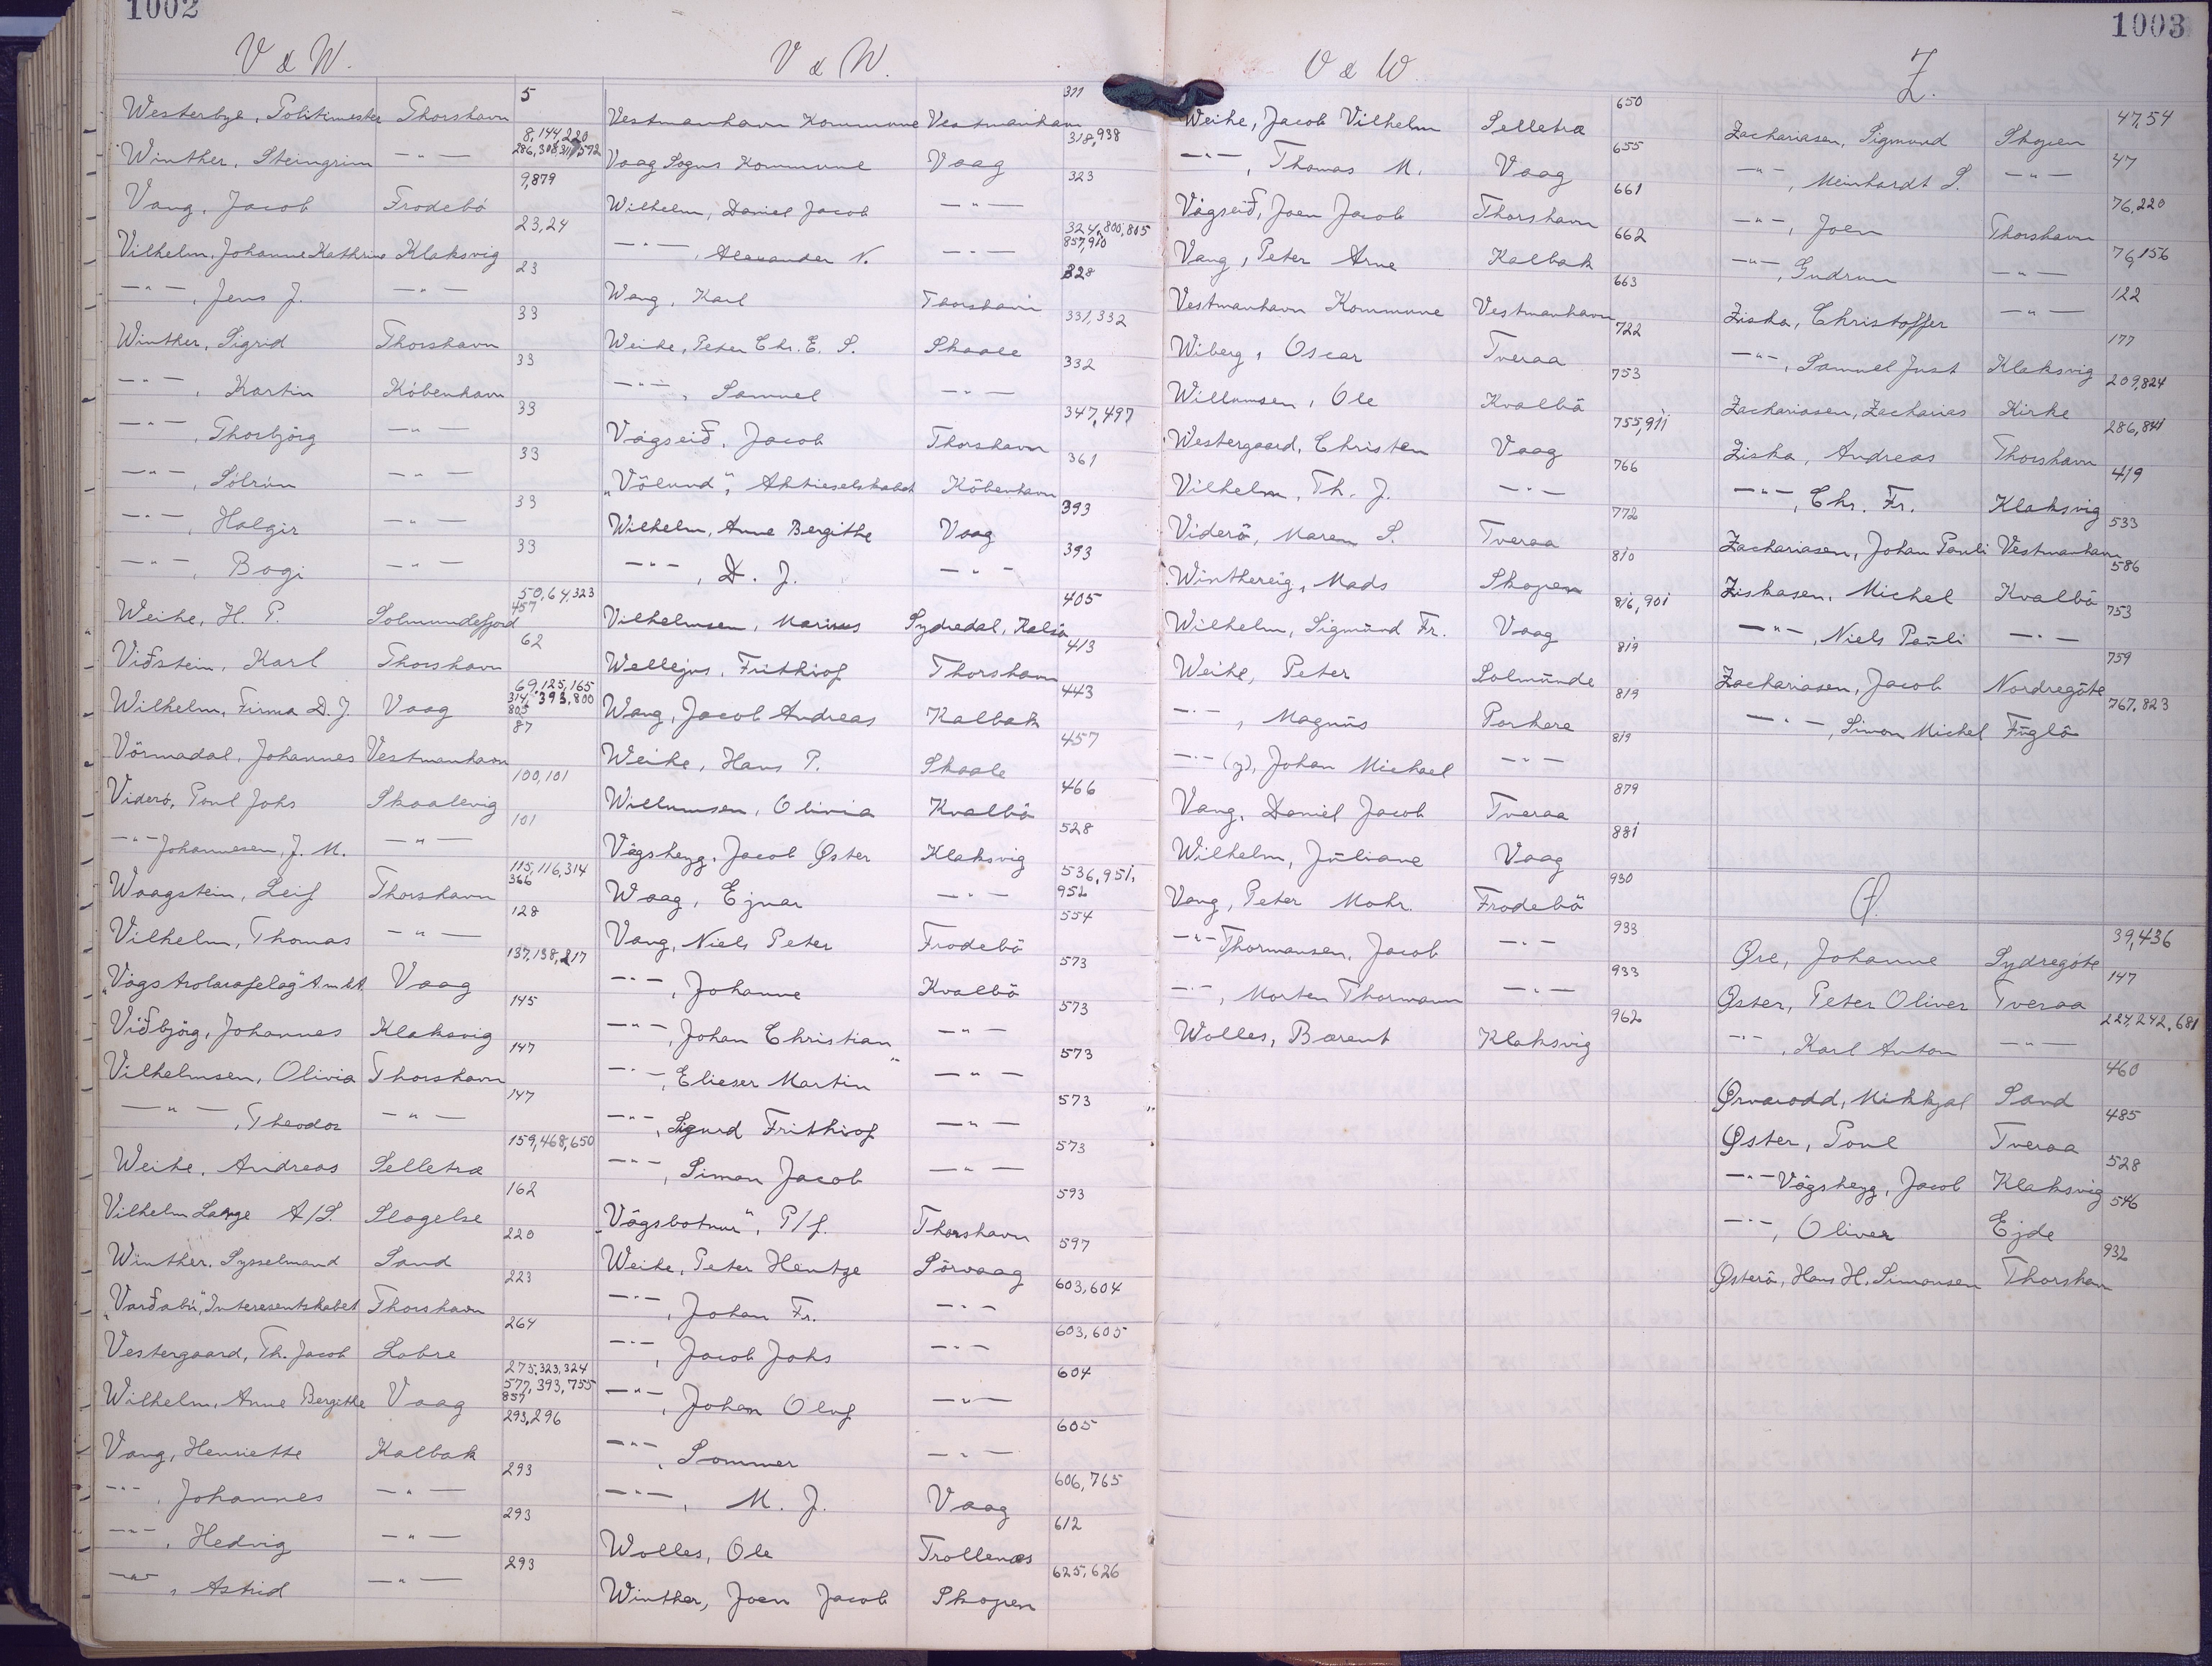 1002
V & W.
5
Westerbye, Politimester Thorshavn
8,144,220
286,308,311,572
Winther, Steingrim —"—
9,879
Vang, Jacob Frodebö
23,24
Vilhelm, Johanne Kathrine Klaksvig
23
—"—, Jens J. —"—
33
Winther, Sigrid Thorshavn
33
—"—, Kartin Köbenhavn
33
—"—, Thorbjörg —"—
33
—"—, Sólrún —"—
33
—"—, Holgir —"—
33
—"—, Bogi —"—
50,64,323
457
Weihe, H. P. Solmundefjord
62
Viðstein, Karl Thorshavn
69,125,165
314,393,800
805
Wilhelm, Firma D. J. Vaag
87
Vörmadal, Johannes Vestmanhavn
100,101
Viderö, Poul Johs Skaalevig
101
—"— Johannesen, J. M. —"—
115,116,314
366
Waagstein, Leif Thorshavn
128
Vilhelm, Thomas —"—
137,138,217
"Vágs trolarafelag" Vaag
145
Viðbjörg, Johannes Klaksvig
147
Vilhelmsen, Olivia Thorshavn
147
—"—, Theodor —"—
159,468,650
Weihe, Andreas Selletra
162
Vilhelm Lange A/S. Slagelse
220
Winther, Sysselmand Sand
223
"Varðabú", Interesentskabet Thorshavn
264
Vestergaard, Th. Jacob Lobre
275,323,324
577,393,755
857
Wilhelm, Anne Bergithe Vaag
293,296
Vang, Henriette Kalbak
293
—"—, Johannes —"—
293
—"—, Hedvig —"—
293
—"—, Astrid —"—
V & W.
311
Vestmanhavn Kommune Vestmanhavn
318,938
Vaag Sogns Kommune Vaag
323
Wilhelm, Daniel Jacob —"—
324,800,805
857,910
—"—, Alexander N. —"—
328
Wang, Karl Thorshavn
331,332
Weihe, Peter Chr. E. S. Skaale
332
—"—, Samuel —"—
347,497
Vágseið, Jacob Thorshavn
361
"Völund", Aktieselskabet Köbenhavn
393
Wilhelm, Anne Bergithe Vaag
393
—"—, D. J. —"—
405
Vilhelmsen, Marius Sydredal, Kalsö
413
Wellejus, Frithiof Thorshavn
443
Wang, Jacob Andreas Kalbak
457
Weihe, Hans P. Skaale
466
Willumsen, Olivia Kvalbö
528
Vágsheyg, Jacob Øster Klaksvig
536,951,
952
Waag, Ejnar —"—
554
Vang, Niels Peter Frodebö
573
—"—, Johanne Kvalbö
573
—"—, Johan Christian —"—
573
—"—, Elieser Martin —"—
573
—"—, Sigurd Frithiof —"—
573
—"—, Simon Jacob —"—
593
"Vágsbotnur", P/f. Thorshavn
597
Weihe, Peter Hentze Sörvaag
603,604
—"—, Johan Fr. —"—
603,605
—"—, Jacob Johs —"—
604
—"—, Johan Oluf —"—
605
—"—, Sommer —"—
606,765
—"—, M. J. Vaag
612
Wolles, Ole Trollenæs
625,626
Winther, Joen Jacob Skopen
1003
V & W
650
Weihe, Jacob Vilhelm Selletra
655
—"—, Thomas M. Vaag
661
Vágseið, Joen Jacob Thorshavn
662
Vang, Peter Arne Kalbak
663
Vestmanhavn Kommune Vestmanhavn
722
Wiberg, Oscar Tveraa
753
Willumsen, Ole Kvalbö
755,911
Westergaard, Christen Vaag
766
Vilhelm, Th. J. —"—
772
Viderö, Maren S. Tveraa
810
Winthereig, Mads Skopen
816,901
Wilhelm, Sigmund Fr. Vaag
819
Weihe, Peter Solmunde
819
—"—, Magnus Porkere
819
—"— (y), Johan Michael —"—
879
Vang, Daniel Jacob Tveraa
881
Wilhelm, Juliane Vaag
930
Vang, Peter Mohr. Frodebö
933
—"— Thormansen, Jacob —"—
933
—"—, Morten Thormann —"—
962
Wolles, Barent Klaksvig
Z.
47,54
Zachariasen, Sigmund Skopen
47
—"—, Meinhardt S. —"—
76,220
—"—, Joen Thorshavn
76,156
—"—, Gudrun —"—
122
Ziska, Christoffer —"—
177
—"—, Samuel Just Klaksvig
209,824
Zachariasen, Zacharias Kirke
286,841
Ziska, Andreas Thorshavn
419
—"—, Chr. Fr. Klaksvig
533
Zachariasen, Johan Pauli Vestmanhavn
586
Ziskasen, Michel Kvalbö
753
—"—, Niels Pauli —"—
759
Zachariasen, Jacob Nordregöte
767,823
—"—, Simon Michel Fuglö
Ø.
39,436
Øre, Johanne Sydregöte
147
Øster, Peter Oliver Tveraa
224,242,681
—"—, Karl Anton —"—
460
Ørvarodd, Mikkjal Sand
485
Øster, Poul Tveraa
528
—"— Vágsheyg, Jacob Klaksvig
546
—"—, Oliver Ejde
932
Østerö, Hans H. Simonsen Thorshavn